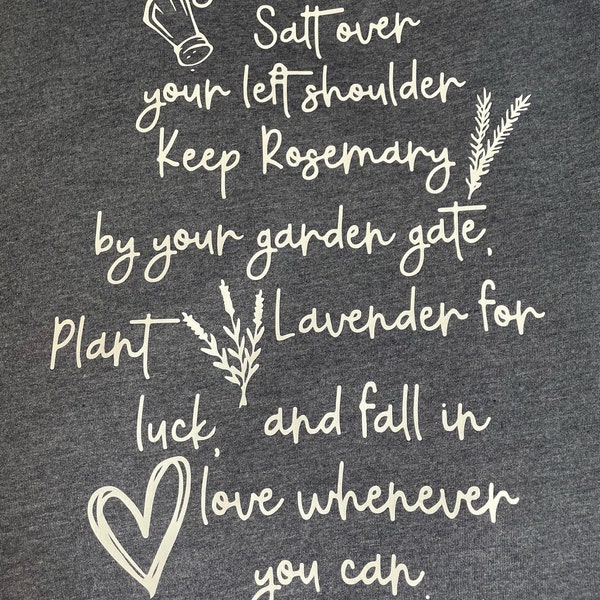 Salt over
your left shoulder
Keep Rosemary
by your garden gate,
Plant Lavender for
luck, and fall in
love whenever
you can.